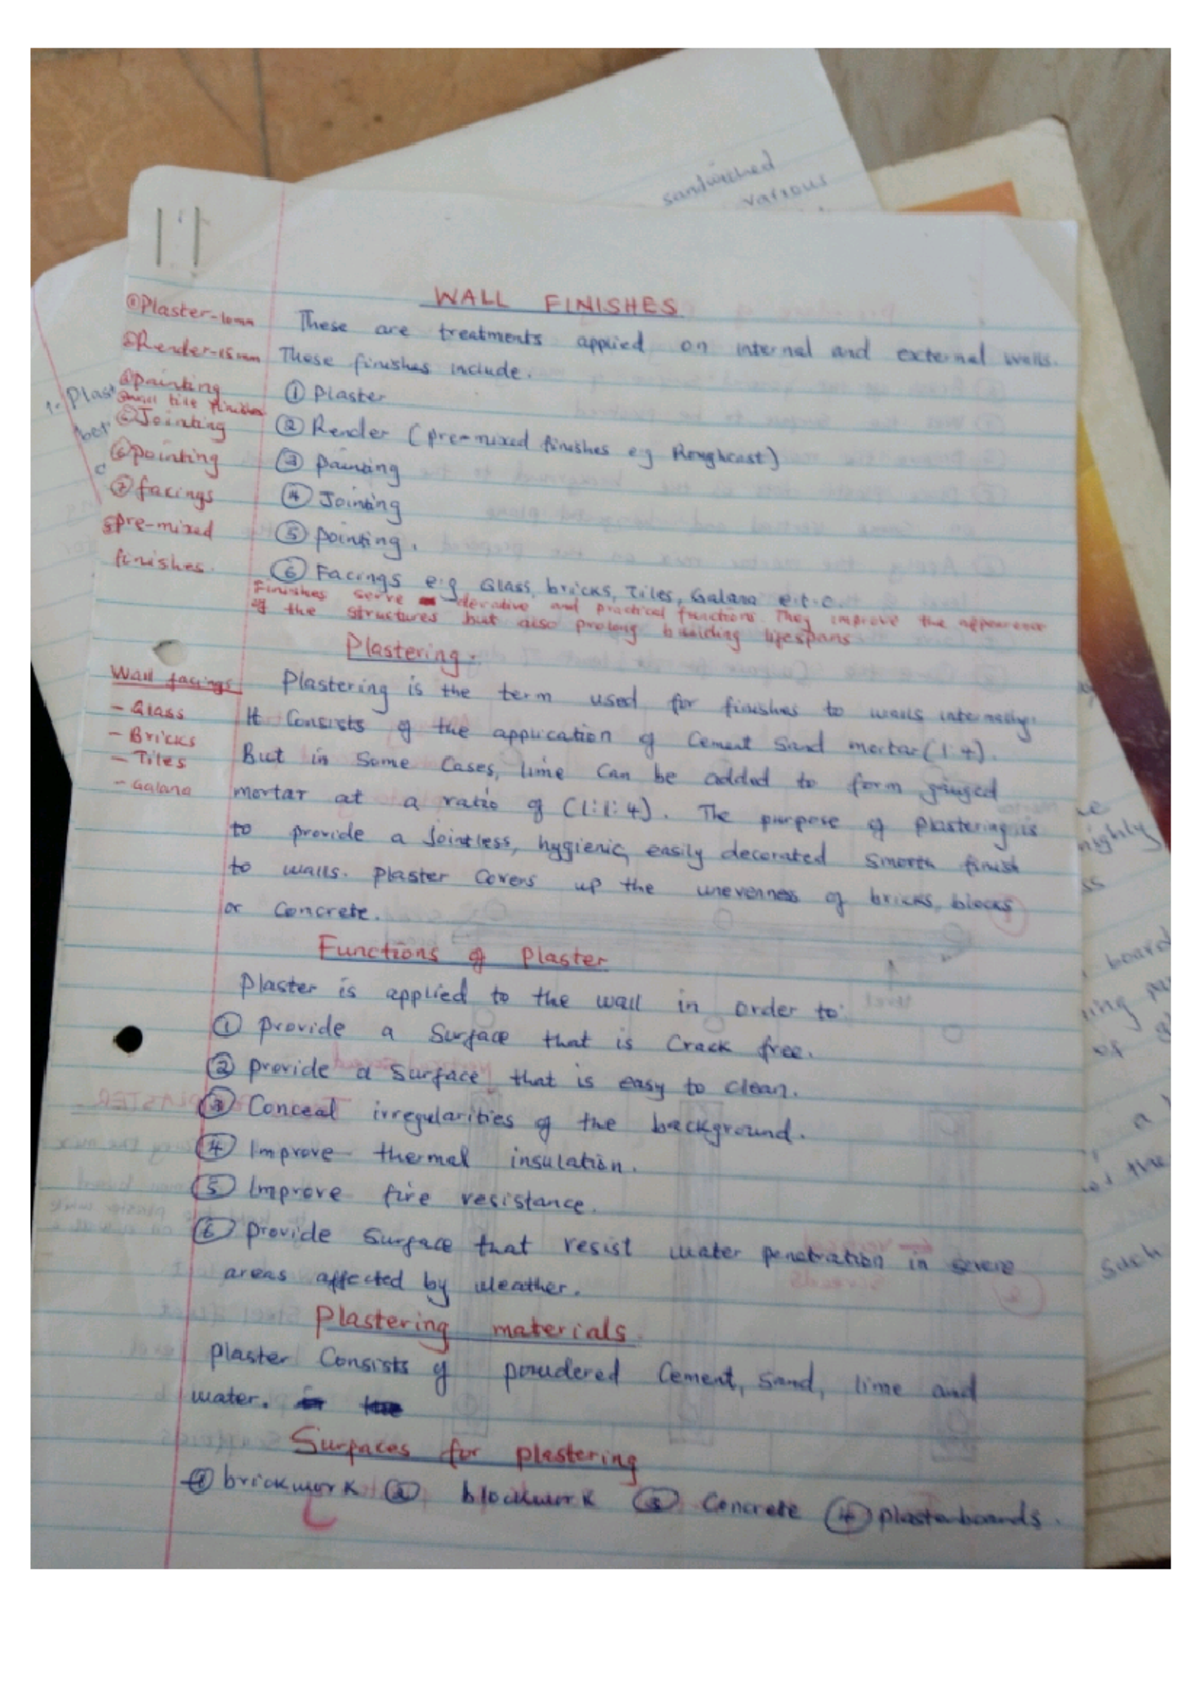 sandwiched
various
WALL FINISHES
These are treatments applied on internal and external walls.
These finishes include.
① Plaster
② Render (pre-mixed finishes eg Roughcast)
③ painting
④ Jointing
⑤ pointing.
⑥ Facings e.g Glass, bricks, Tiles, Galana e.t.c
Finishes serve derative and practical functions. They improve the appearance
of the structures but also prolong building lifespans
① Plaster-10mm
② Render-15mm
③ painting
④ wall tile finishes
⑤ Jointing
⑥ pointing
⑦ facings
⑧ pre-mixed
finishes.
Plastering:-
Wall facings
- Glass
- Bricks
- Tiles
- Galana
Plastering is the term used for finishes to walls internally.
It Consists of the application of Cement Sand mortar (1:4).
But in Some Cases, lime Can be added to form guaged
mortar at a ratio of (1:1:4). The purpose of plastering is
to provide a Jointless, hygienic, easily decorated Smooth finish
to walls. Plaster Covers up the unevenness of bricks, blocks
or Concrete.
Functions of Plaster
Plaster is applied to the wall in order to:
① provide a Surface that is Crack free.
② provide a Surface that is easy to clean.
③ Conceal irregularities of the background.
④ Improve thermal insulation.
⑤ Improve fire resistance.
⑥ provide Surface that resist water penetration in severe
areas affected by weather.
Plastering materials.
plaster Consists of powdered Cement, Sand, lime and
water.
Surfaces for plastering
① brickwork ② blockwork ③ Concrete ④ plasterboards.